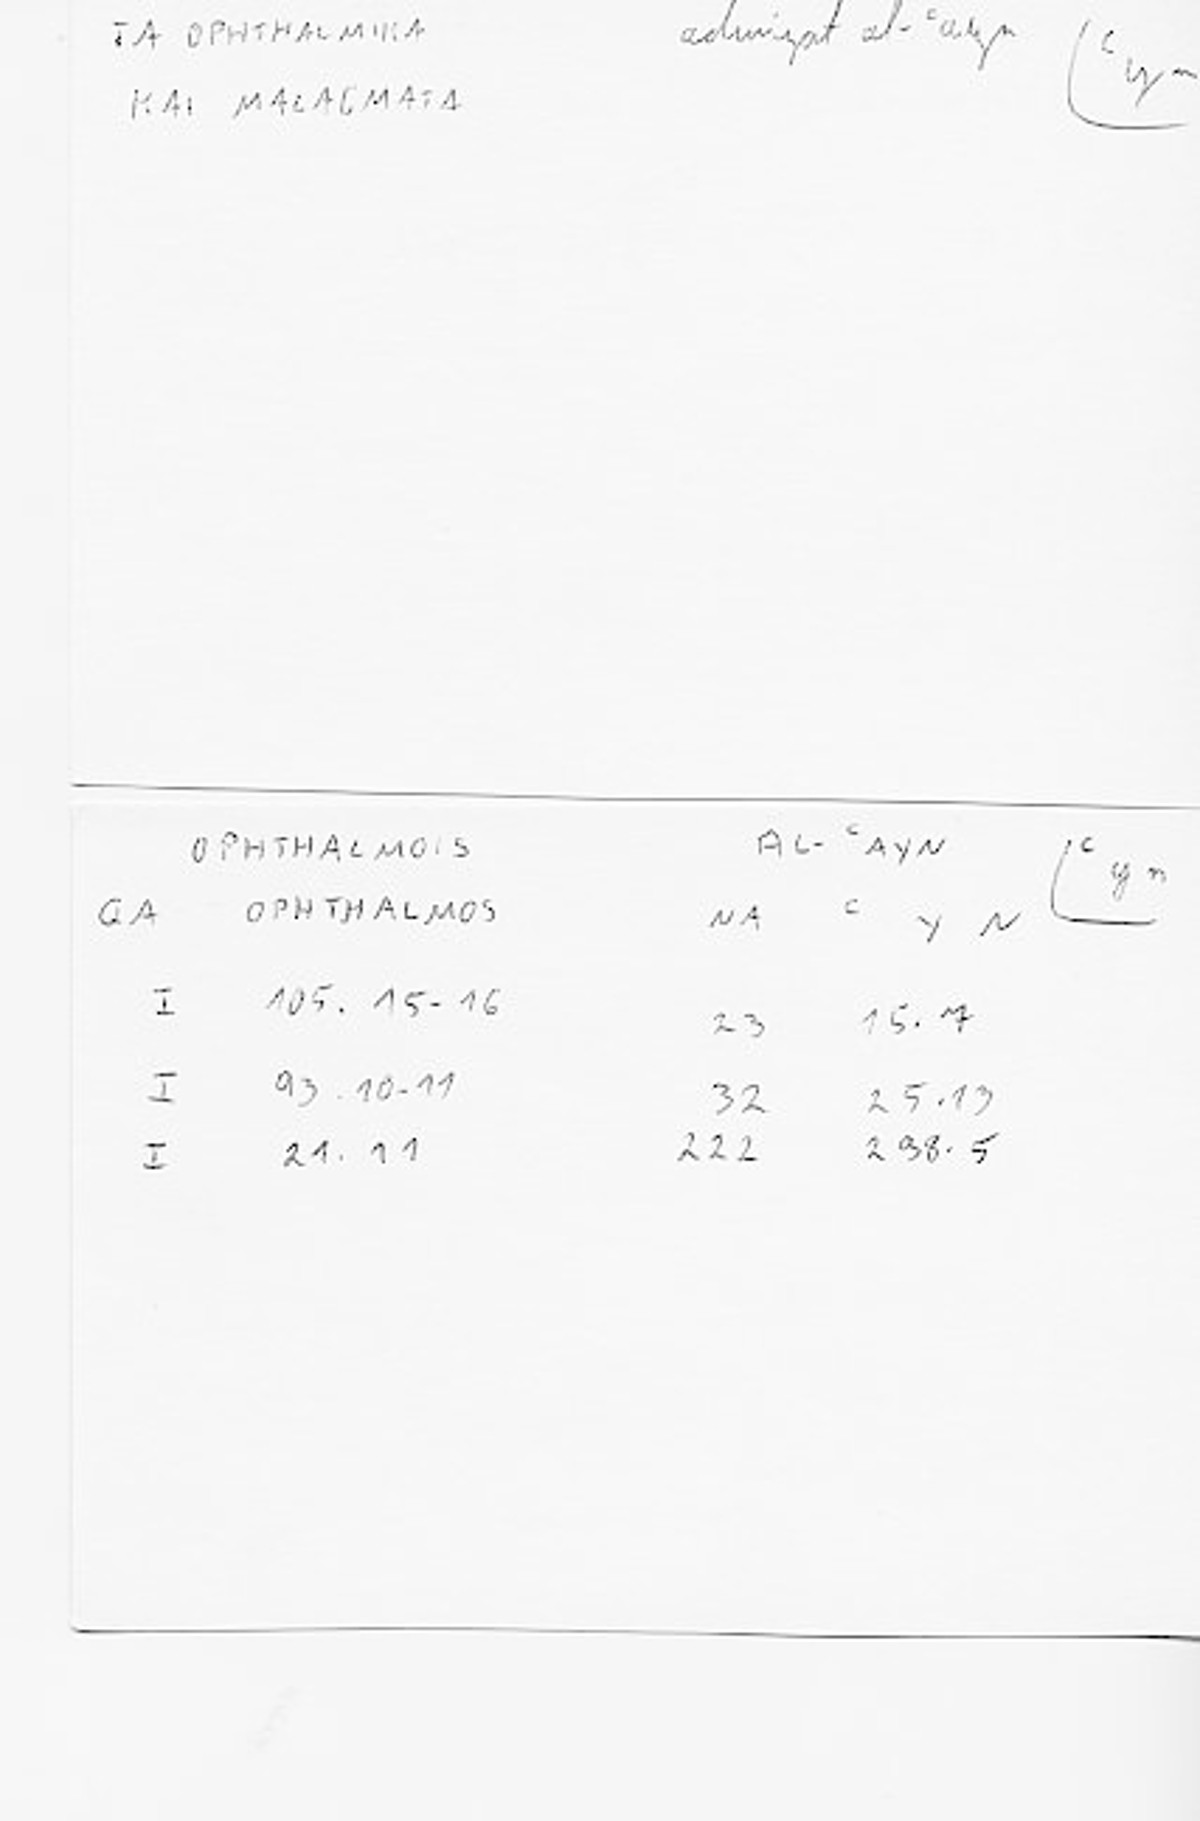 TA OPHTHALMIKA adwiyat al-ʿayn ʿyn
KAI MALAGMATA
OPHTHALMOIS AL-ʿAYN ʿyn
GA OPHTHALMOS NA ʿ Y N
I 105. 15-16 23 15.7
I 93.10-11 32 25.13
I 21.11 222 298.5